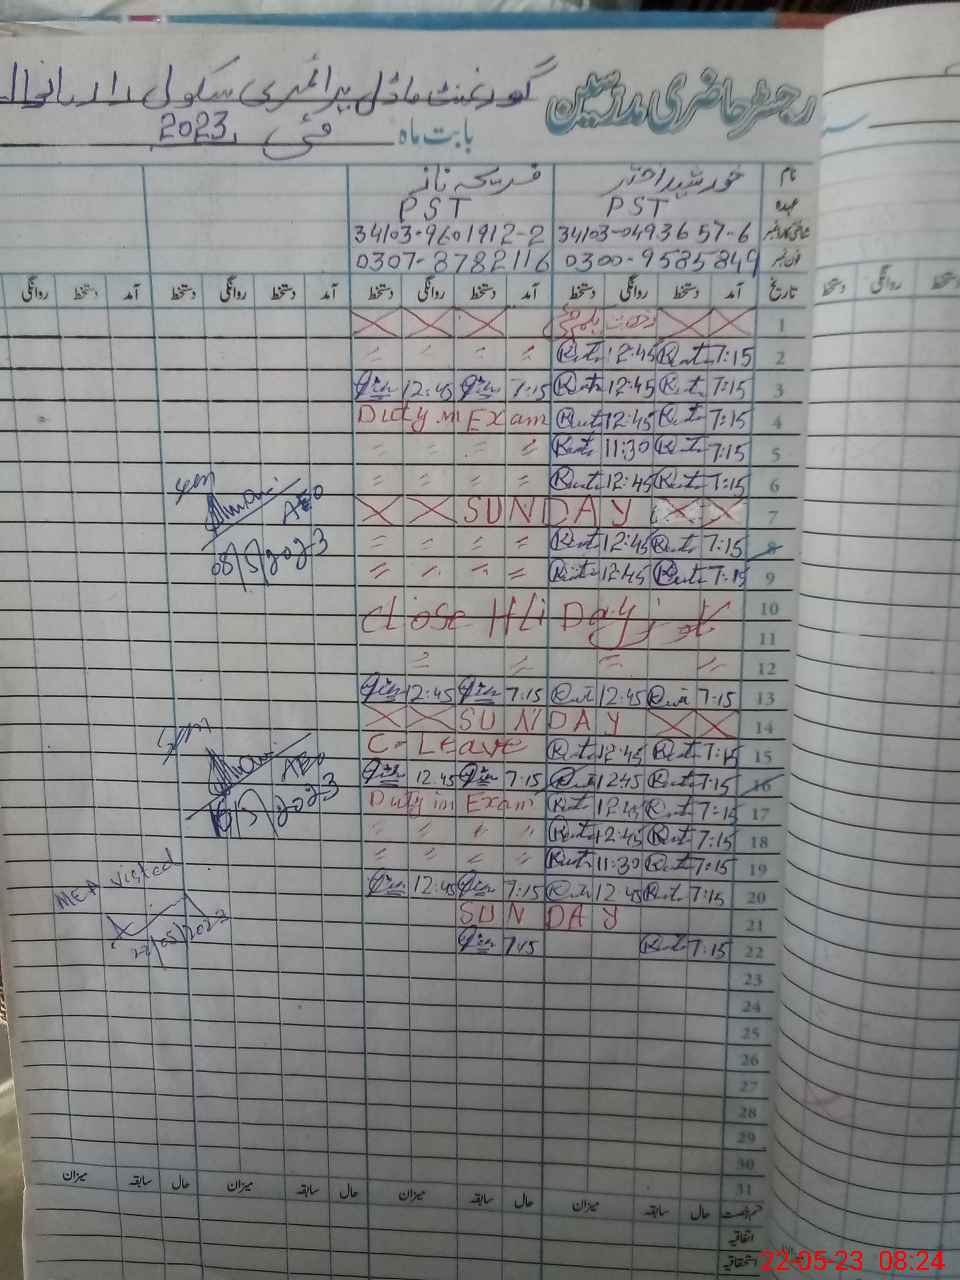 رجسٹر حاضری مدرسین گورنمنٹ ماڈل پرائمری سکول
بابت ماہ مئی 2023
نام خورشید اختر فریحہ ناز
عہدہ PST PST
شناختی کارڈ نمبر 34103-0493657-6 34103-9601912-2
فون نمبر 0300-9585849 0307-8782116
تاریخ آمد دستخط روانگی دستخط آمد دستخط روانگی دستخط آمد دستخط روانگی دستخط آمد دستخط روانگی
دستخط روانگی دستخط
1
2 7:15 12:45 〃 〃 〃 〃
3 7:15 12:45 7:15 12:45
4 7:15 12:45 Duty in Exam
5 7:15 11:30 〃 〃 〃 〃
6 7:15 12:45 〃 〃 〃 〃
7 SUNDAY
8 7:15 12:45 〃 〃 〃 〃
9 7:15 12:45 〃 〃 〃 〃
AEO
08/5/2023
10 Close Hli Day
11
12 〃 〃 〃 〃
13 7:15 12:45 7:15 12:45
14 SUNDAY
15 7:15 12:45 C-Leave
16 7:15 12:45 7:15 12:45
17 7:15 12:45 Duty in Exam
AEO
16/5/2023
18 7:15 12:45 〃 〃 〃 〃
19 7:15 11:30 〃 〃 〃 〃
20 7:15 12:45 7:15 12:45
21 SUNDAY
22 7:15 7:15
MEA visited
22/05/2023
23
24
25
26
27
28
29
30
31
حال سابقہ میزان حال سابقہ میزان حال سابقہ میزان حال سابقہ میزان
اتفاقیہ
استحقاقیہ
22-05-23 08:24